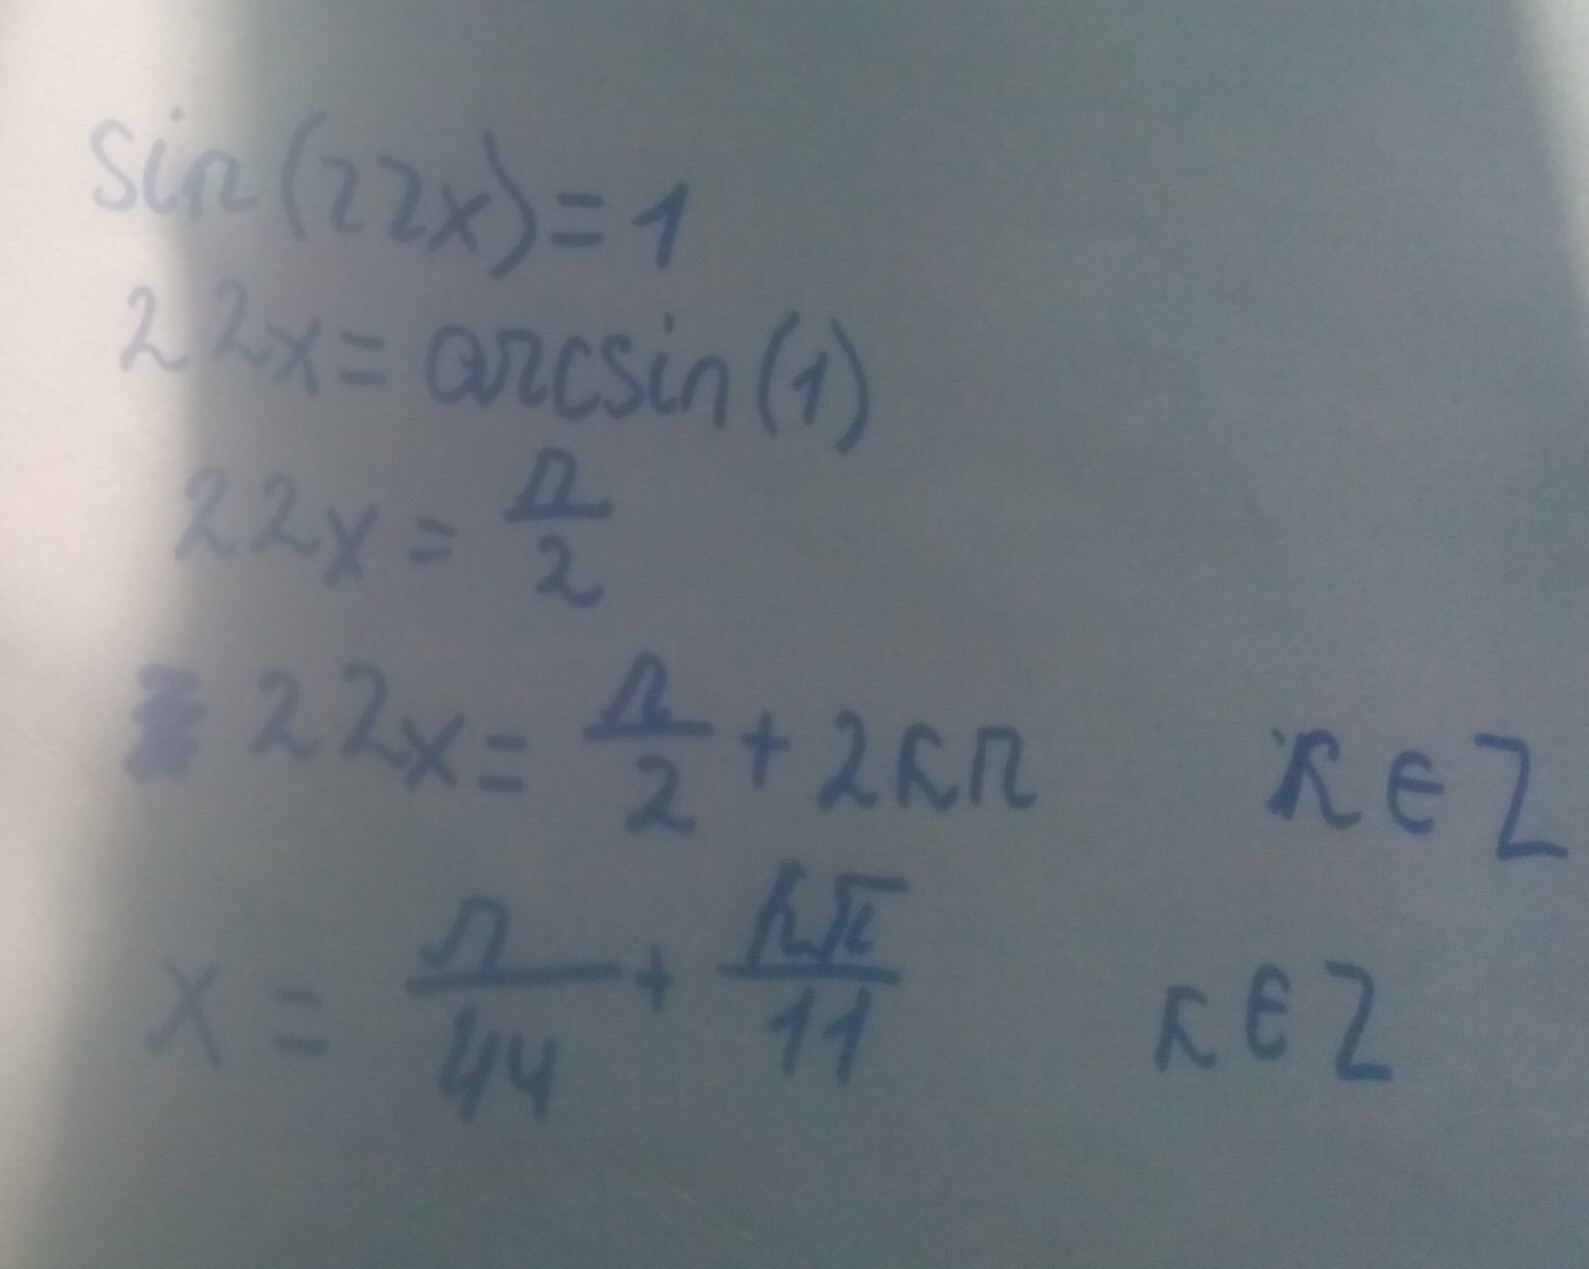 sin(22x)=1
22x= arcsin(1)
22x = π/2
22x= π/2 + 2kπ k∈Z
x = π/44 + kπ/11 k∈Z